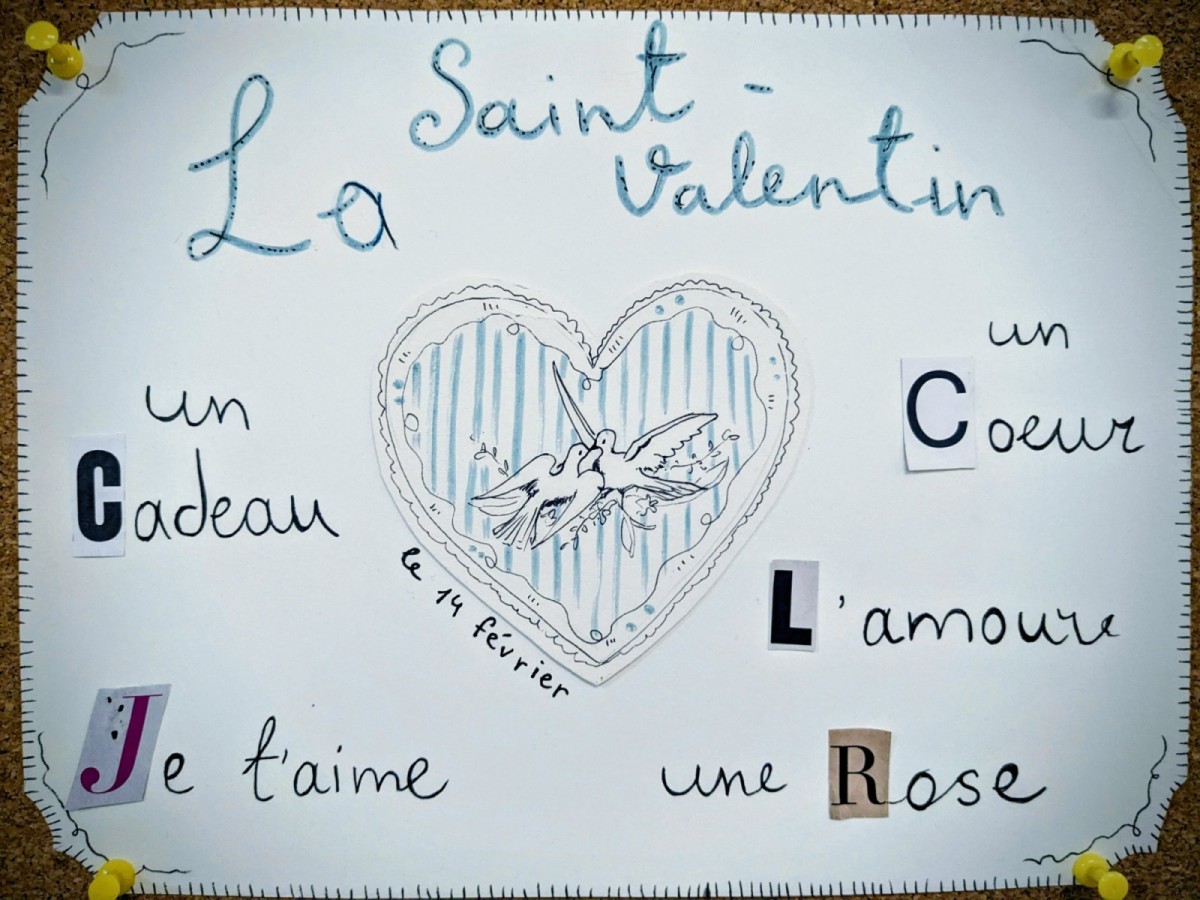 La Saint-
Valentin
un
Cadeau
un
Coeur
le 14 février
L'amoure
Je t'aime
une Rose